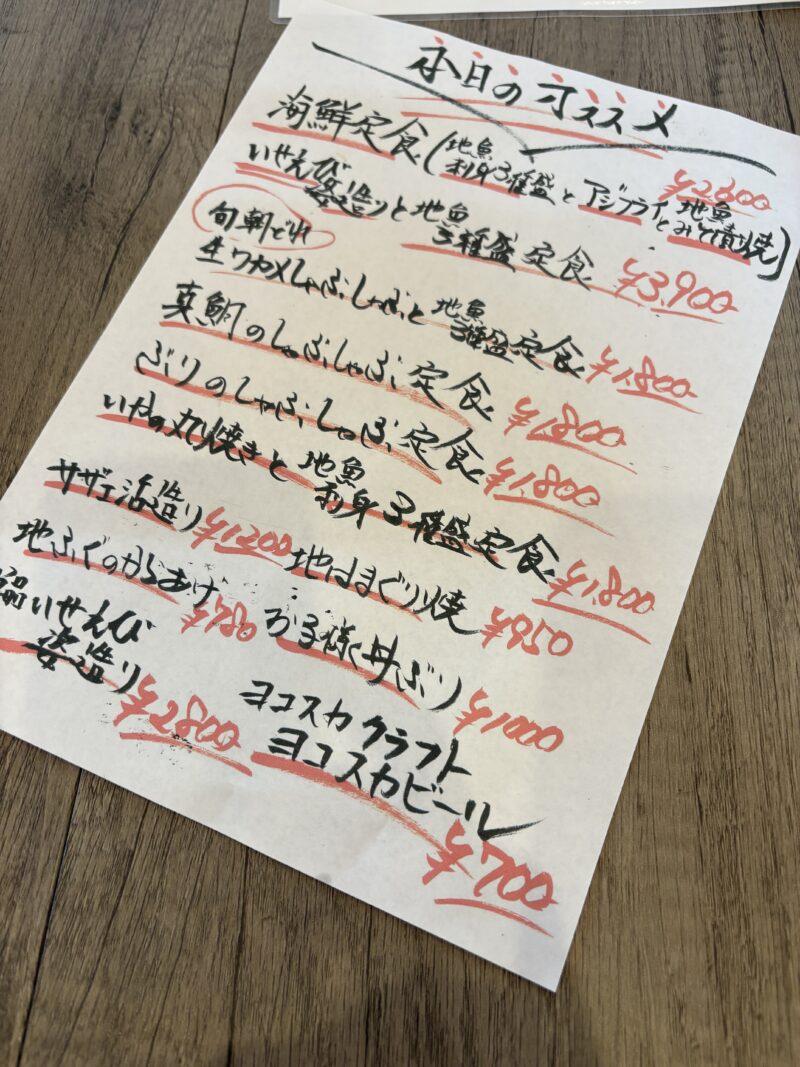 本日のオススメ
海鮮定食(地魚刺身3種盛とアジフライと地魚みそ漬焼) ¥2,600
いせえび姿造りと地魚3種盛定食 ¥3,900
旬 朝どれ
生ワカメしゃぶしゃぶと地魚3種盛定食 ¥1,800
真鯛のしゃぶしゃぶ定食 ¥1,800
ぶりのしゃぶしゃぶ定食 ¥1,800
いかの丸焼きと地魚刺身3種盛定食 ¥1,800
サザエ活造り ¥1,200 地はまぐり焼 ¥950
地ふぐのからあげ ¥780 お子様丼ぶり ¥1000
いせえび姿造り ¥2,800
ヨコスカクラフト
ヨコスカビール ¥700